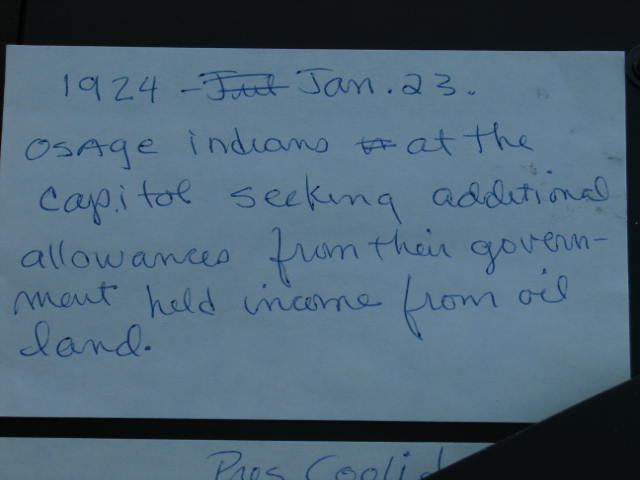 1924 - Jan. 23.
Osage indians at the
Capitol seeking additional
allowances from their govern-
ment held income from oil
land.
Pres Coolid